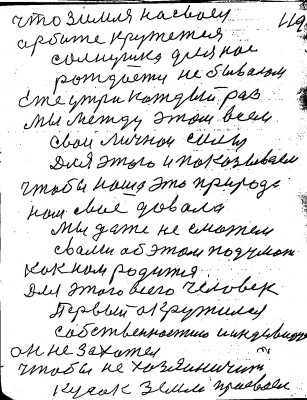 что Земля на своей 119
арбите крутется
солнушка для нас
рождаети не бывалом
сте утри каждый раз
мы между этом всем
свои личной силы
Для этого и показываем
чтобы наша это природа
нам своё довала
мы даже не сможем
свами об этом подумат
как нам родится
Для этого всего человек
Первый окружился
собственностию
он не захотел
чтобы не хозяиничит
кусок Земли